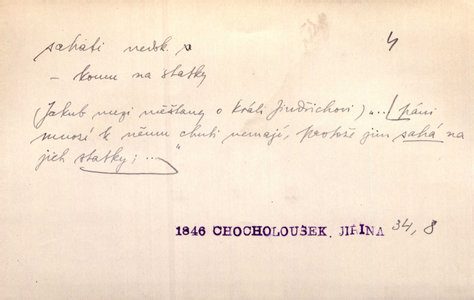 sahati nedok.
4
– komu na statky
(Jakub mezi měšťany o králi Jindřichovi) „... páni
mnozí k němu chuti nemají, protože jim sahá na
jich statky; ..."
1846 CHOCHOLOUŠEK, JIŘINA 34, 8